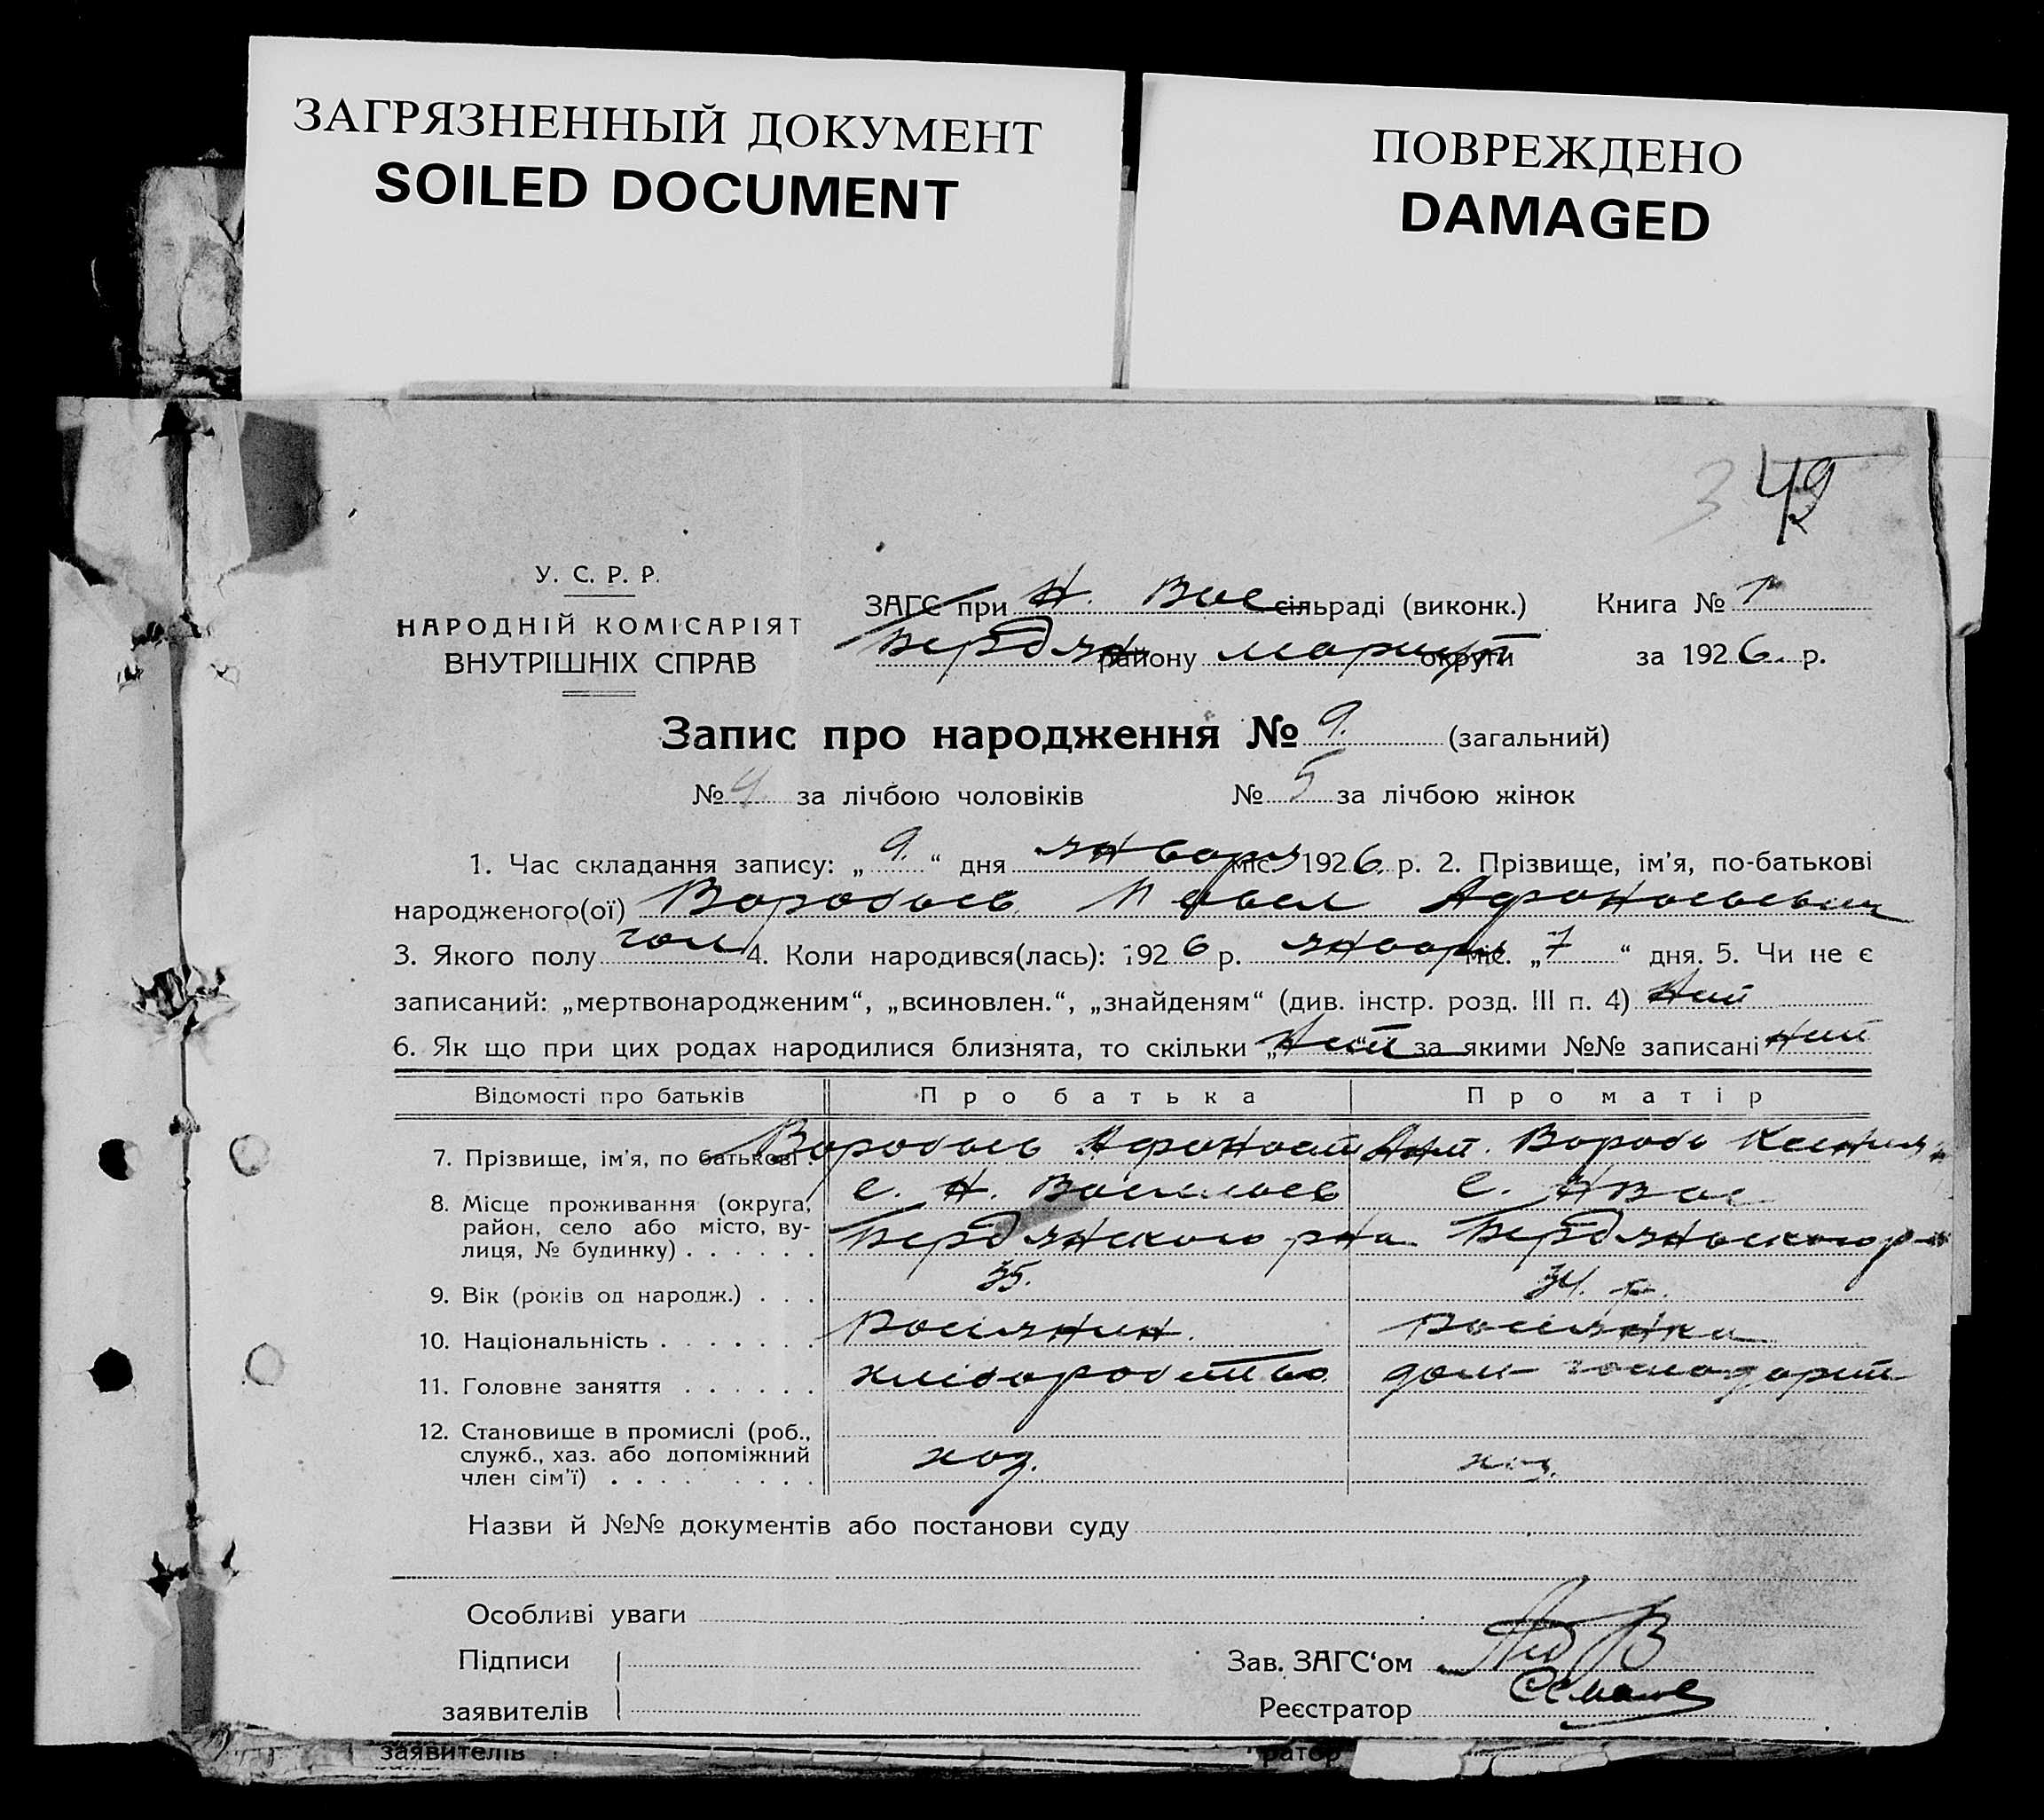 ЗАГРЯЗНЕННЫЙ ДОКУМЕНТ
SOILED DOCUMENT
ПОВРЕЖДЕНО
DAMAGED
3 42
У. С. Р. Р.
НАРОДНІЙ КОМІСАРІЯТ
ВНУТРІШНІХ СПРАВ
ЗАГС при Н. Вас сільраді (виконк.) Книга №
Бердян району Мариуп округи за 1926. р.
Запис про народження № 9. (загальний)
№ 4 за лічбою чоловіків № 5 за лічбою жінок
1. Час складання запису: „9.“ дня января міс 1926. р. 2. Прізвище, ім'я, по-батькові
народженого(ої) Воробьев Павел Афанасьевич
3. Якого полу чол 4. Коли народився(лась): 1926 р. января міс. „7“ дня. 5. Чи не є
записаний: „мертвонародженим“, „всиновлен.“, „знайденям“ (див. інстр. розд. III п. 4)
6. Як що при цих родах народилися близнята, то скільки за якими №№ записані
Відомості про батьків
Про батька
Про матір
7. Прізвище, ім'я, по батькові . Воробьев Афанасий Вороб Ксения
8. Місце проживання (округа, район, село або місто, вулиця, № будинку) . . . . . .
с. Н. Васильев с. Н Вас
Бердянского рна Бердянського р
9. Вік (років од народж.) . . . 35. 34.
10. Національність . . . . . . . Росіянин. Росіянка
11. Головне заняття . . . . . . хліборобство. дом господарст
12. Становище в промислі (роб.,
служб., хаз. або допоміжний
член сім'ї) . . . . . . . . . хоз. хоз.
Назви й №№ документів або постанови суду
Особливі уваги
Підписи
заявителів
Зав. ЗАГС'ом
Реєстратор
заявителів ратор